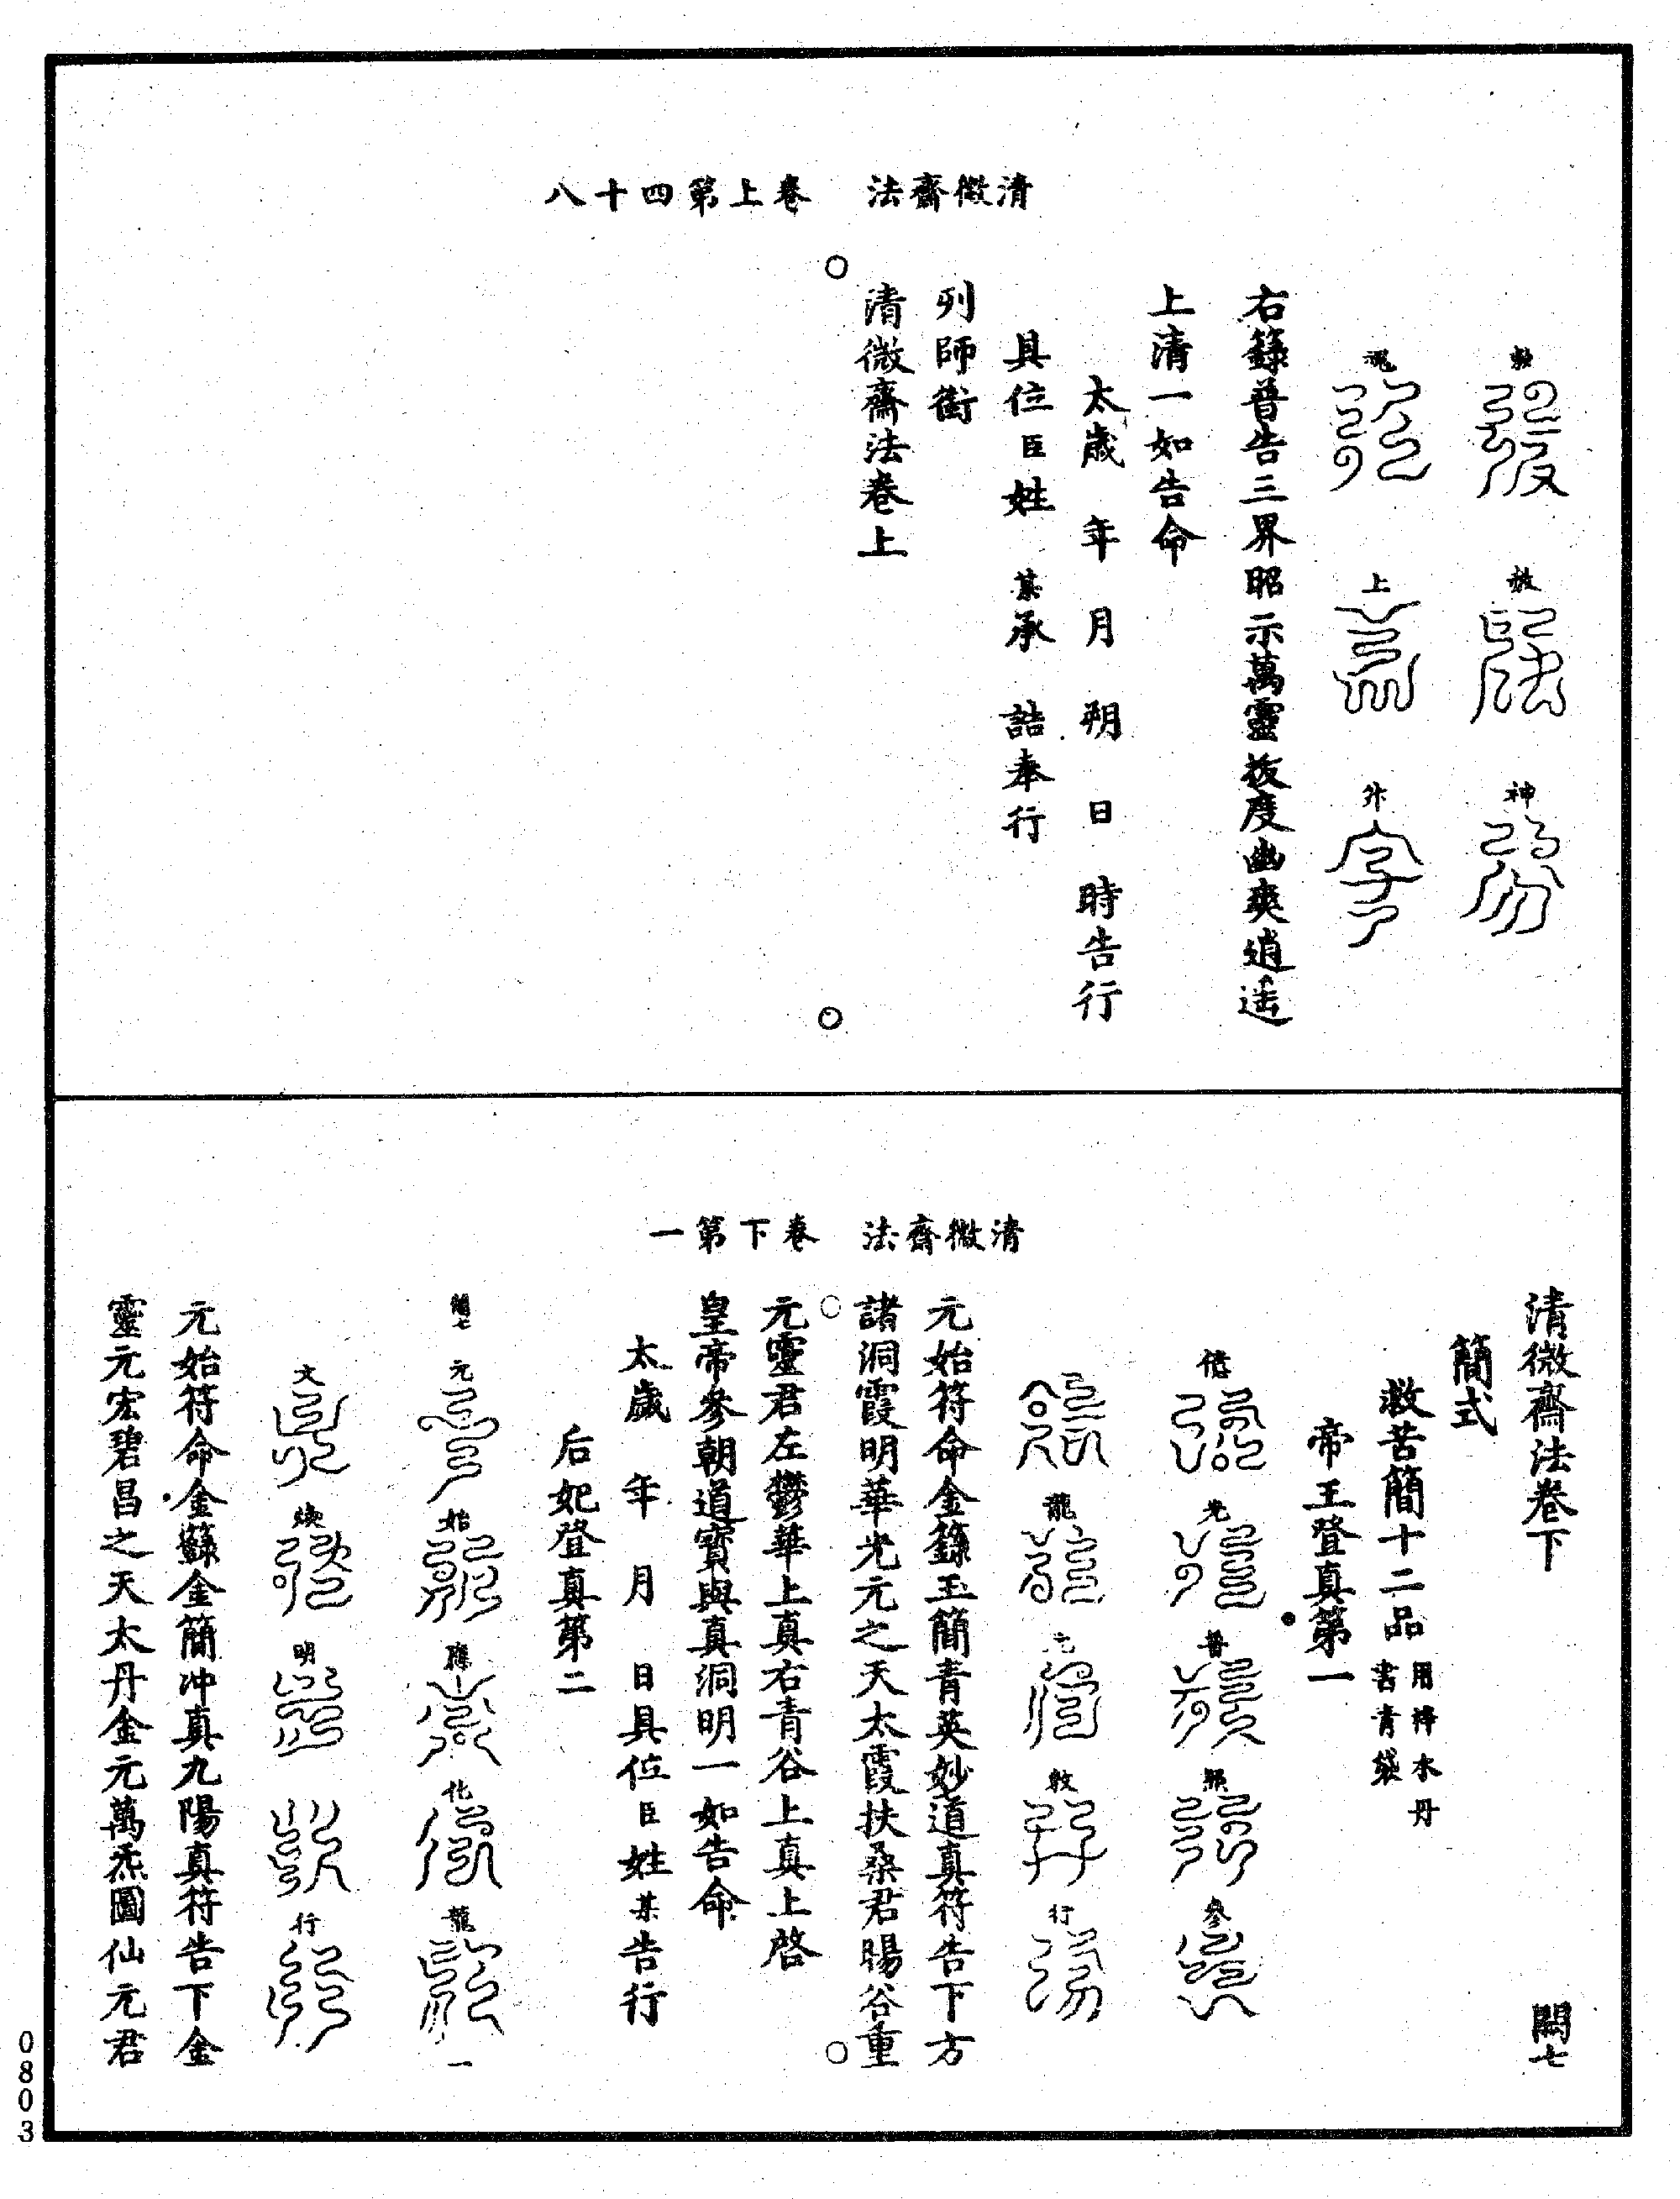 清微齋法　卷上第四十八
敕　赦　神
魂　上　升
右籙普告三界昭示萬靈拔度幽爽逍遥
上清一如告命
太歲　年　月　朔　日　時告行
具位臣姓　某承　誥奉行
列師銜
清微齋法卷上
清微齋法　卷下第一
清微齋法卷下　闕七
簡式
救苦簡十二品用淨水丹書青袋
帝王登真第一
光　普　照　參
龍　敕　行
元始符命金籙玉簡青英妙道真符告下方
諸洞霞明華光元之天太霞扶桑君暘谷重
元靈君左鬱華上真右青谷上真上啓
皇帝參朝道寶與真洞明一如告命
太歲　年　月　日具位臣姓某告行
后妃登真第二
簡七　元　始　化　龍　一
文　煥　明　行
元始符命金籙金簡冲真九陽真符告下金
靈元宏碧昌之天太丹金元萬炁圖仙元君
0803